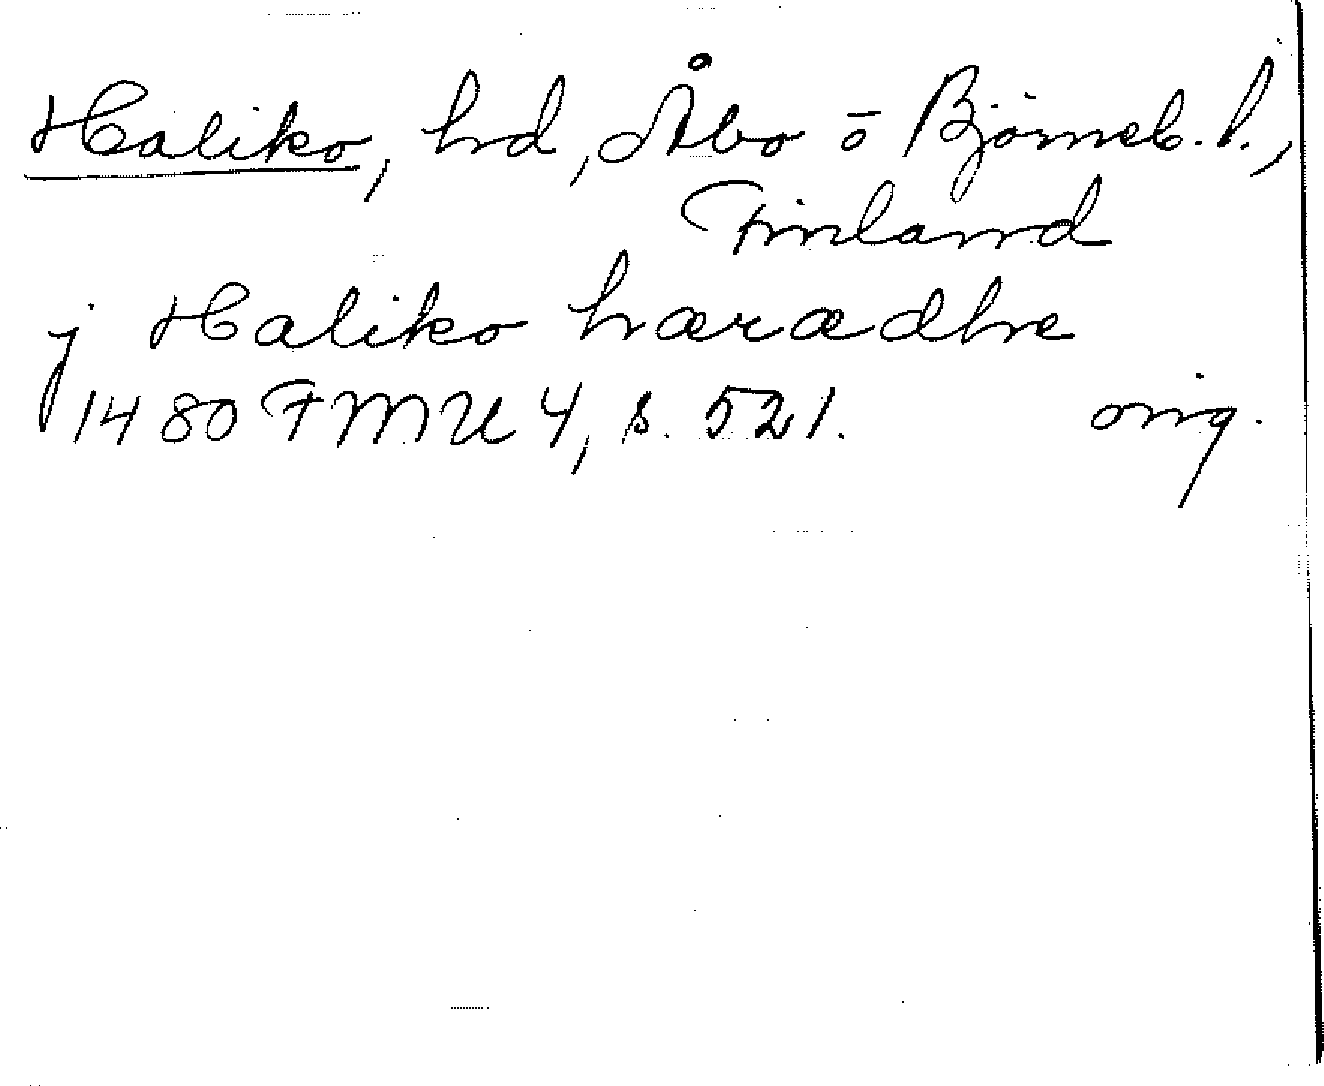 Haliko, hd, Åbo o Björneb. l.,
Finland
j Haliko hærædhe
1480 FMU 4, s. 521. orig.